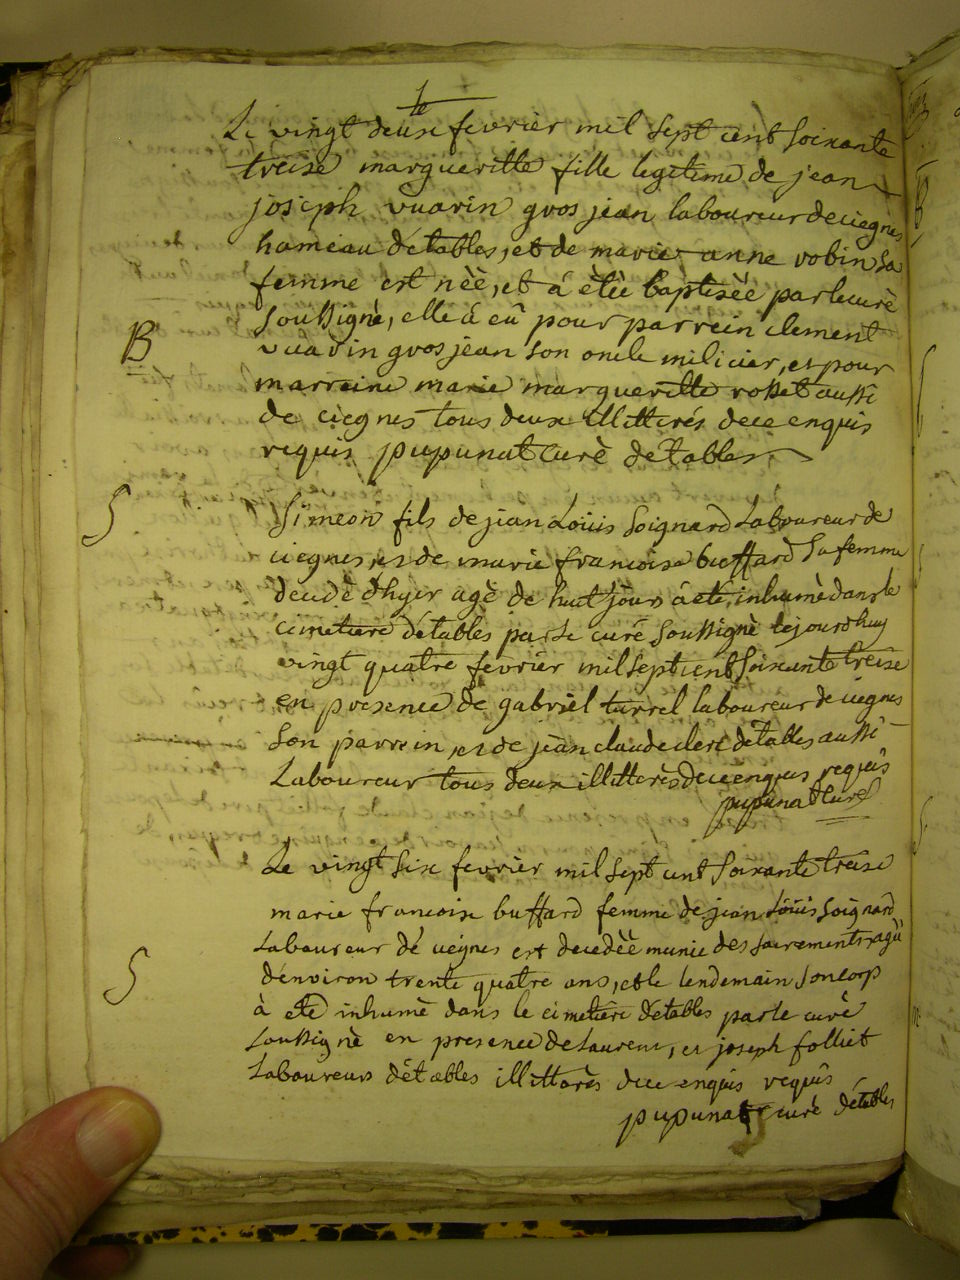 Le vingt deux fevrier mil sept cent soixante
treise margueritte fille legitime de jean
joseph vuarin gros jean laboureur de ciegnes
hameau détables, et de marie anne robin sa
femme est nèè, et á étée baptisèe par le curè
soussignè, elle á eû pour parrein clement
B
vuarin gros jean son oncle milicier, et pour
marreine marie margueritte rosset aussi
de ciegnes tous deux illitterés de ce enquis
requis pupunat curè détables
S
Simeon fils de jean Loüis Soignard Laboureur de
ciegnes, et de marie francoise buffard sa femme
decedè d'hyer agè de huit jours á eté inhumè dans le
cimetiere détables par le curé soussignè cejourdhuy
vingt quatre fevrier mil sept cent soixante treise
en presence de gabriel turrel laboureur de ciegnes
son parrein, et de jean claude clerc détables aussi
Laboureur tous deux illitterès de ce enquis requis
pupunat curé
Le vingt six fevrier mil sept cent soixante treise
marie francoise buffard femme de jean Loüis Soignard
S
Laboureur de ciegnes est decedèè munie des sacrements agèè
d'environ trente quatre ans, et le lendemain son corp
à eté inhumè dans le cimetiere détables par le curè
soussignè en presence de Laurent, et joseph folliet
Laboureurs détables illitterès de ce enquis requis
pupunat curè détables